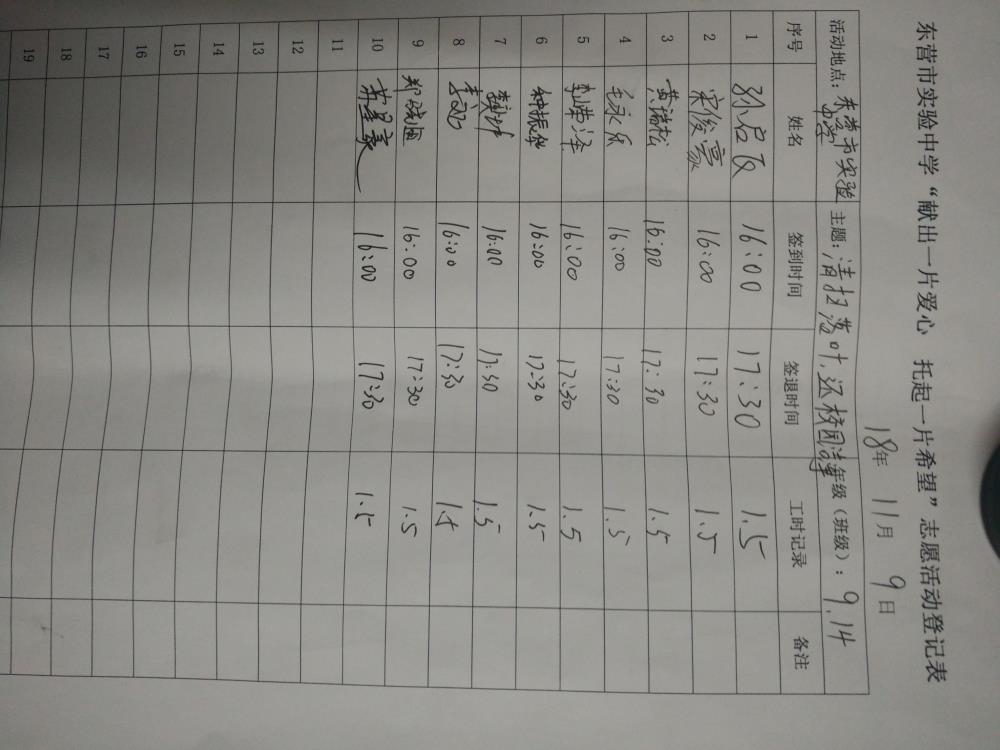 东营市实验中学“献出一片爱心 托起一片希望”志愿活动登记表
18年 11月 9日
活动地点：东营市实验中学 主题：清扫落叶，还校园洁净 年级（班级）：9.14
序号 姓名 签到时间 签退时间 工时记录 备注
1 16:00 17:30 1.5
2 宋俊豪 16:00 17:30 1.5
3 黄瑞松 16:00 17:30 1.5
4 毛永乐 16:00 17:30 1.5
5 李荣泽 16:00 17:30 1.5
6 钟振华 16:00 17:30 1.5
7 16:00 17:30 1.5
8 16:00 17:30 1.5
9 郑皓 16:00 17:30 1.5
10 苏星豪 16:00 17:30 1.5
11
12
13
14
15
16
17
18
19